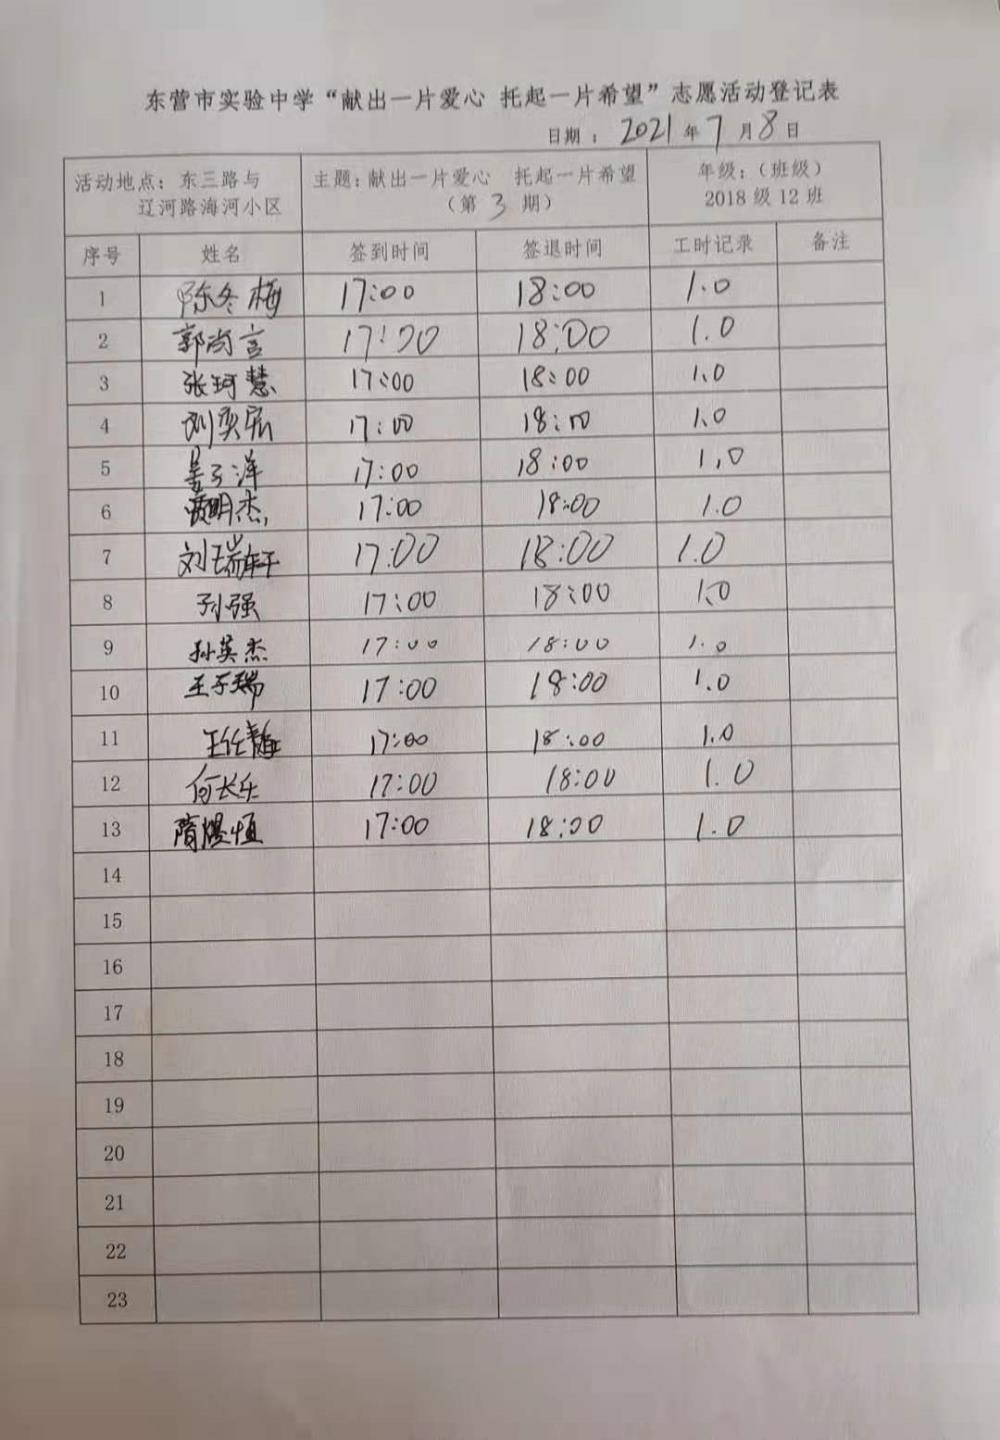 东营市实验中学“献出一片爱心 托起一片希望”志愿活动登记表
日期：2021年7月8日
活动地点：东三路与 主题：献出一片爱心 托起一片希望 年级：（班级）
辽河路海河小区 （第 3 期） 2018 级 12 班
序号 姓名 签到时间 签退时间 工时记录 备注
1 陈冬梅 17:00 18:00 1.0
2 郭尚言 17:00 18:00 1.0
3 张珂慧 17:00 18:00 1.0
4 刘奕宏 17:00 18:00 1.0
5 姜子洋 17:00 18:00 1.0
6 贾明杰 17:00 18:00 1.0
7 刘瑞轩 17:00 18:00 1.0
8 孙强 17:00 18:00 1.0
9 孙英杰 17:00 18:00 1.0
10 王子瑞 17:00 18:00 1.0
11 王任 17:00 18:00 1.0
12 何长乐 17:00 18:00 1.0
13 隋煜恒 17:00 18:00 1.0
14
15
16
17
18
19
20
21
22
23